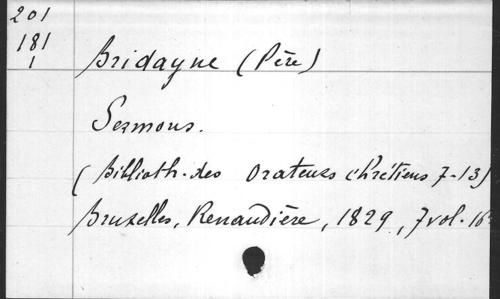 201
181
1
Bridayne (Père)
Sermons.
(Biblioth. des Orateurs chrétiens 7-13)
Bruxelles, Renaudière, 1829, 7 vol. 16°